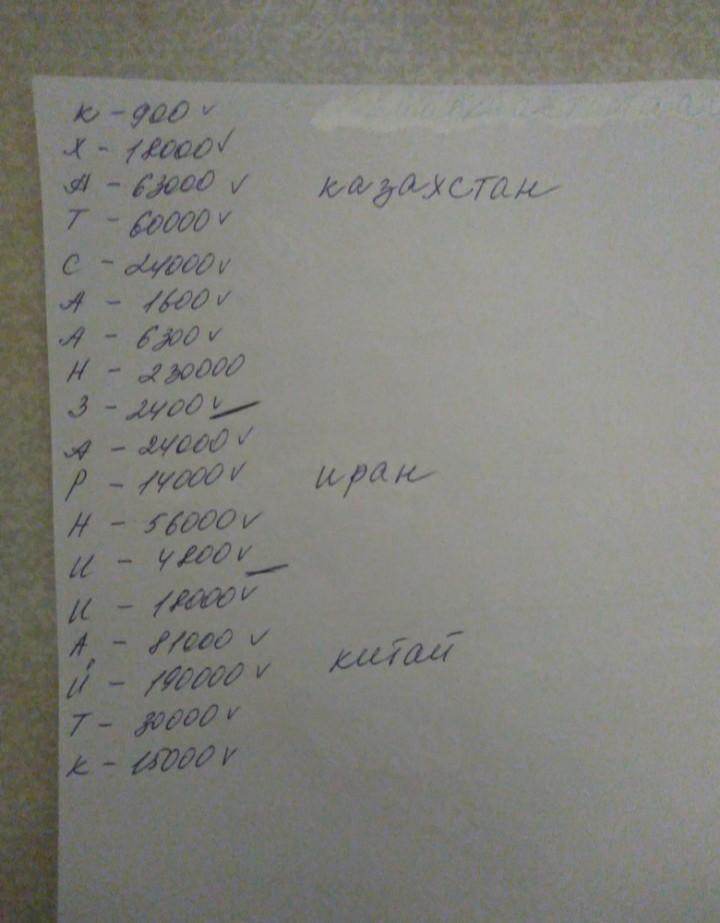 К - 900 ✓
Х - 18000 ✓
А - 63000 ✓ казахстан
Т - 60000 ✓
С - 24000 ✓
А - 1600 ✓
А - 6300 ✓
Н - 230000
З - 2400 ✓
А - 24000 ✓
Р - 14000 ✓ иран
Н - 56000 ✓
И - 4800 ✓
И - 18000 ✓
А - 81000 ✓ китай
Й - 190000 ✓
Т - 30000 ✓
К - 15000 ✓